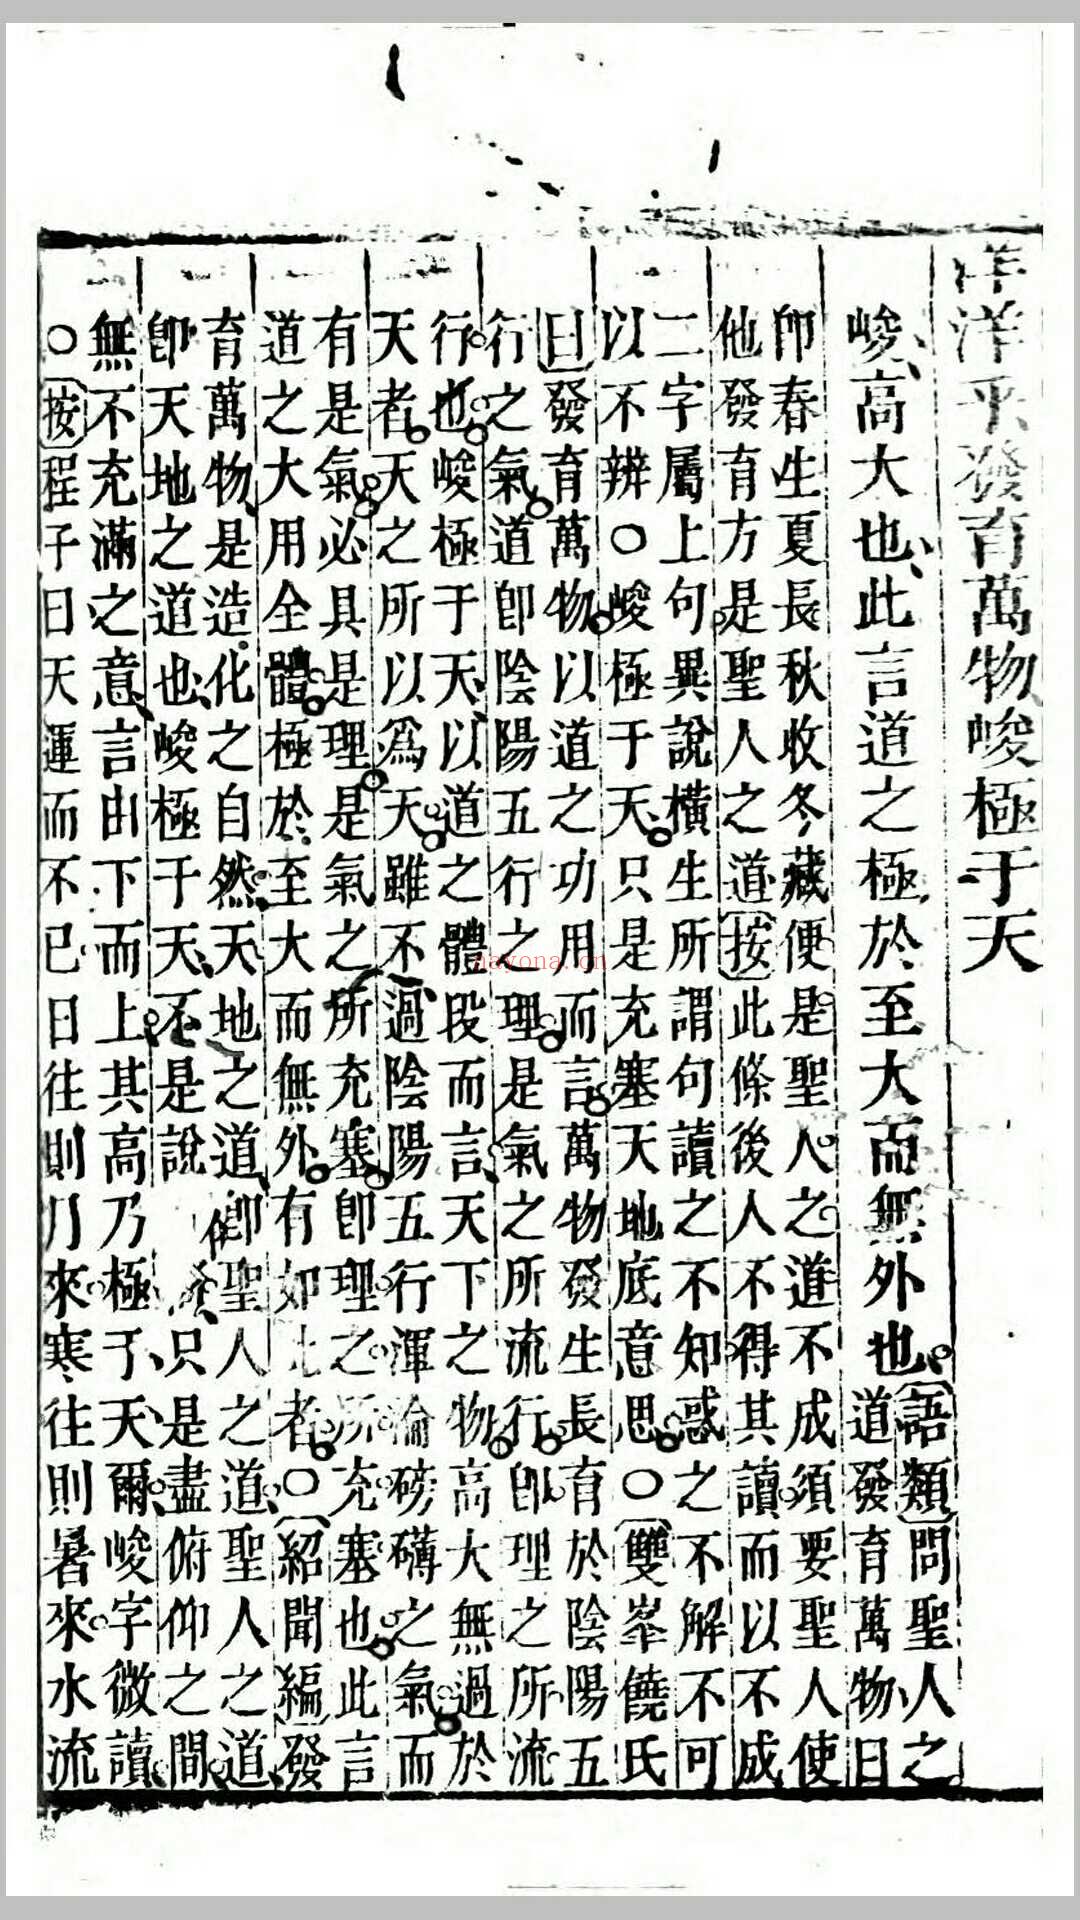 洋洋乎發育萬物峻極于天
峻高大也此言道之極於至大而無外也
語類問聖人之
道發育萬物曰
卽春生夏長秋收冬藏便是聖人之道不成須要聖人使
他發育方是聖人之道按此條後人不得其讀而以不成
二字屬上句異說橫生所謂句讀之不知惑之不解不可
以不辨○峻極于天只是充塞天地底意思○雙峯饒氏
曰發育萬物以道之功用而言萬物發生長育於陰陽五
行之氣道卽陰陽五行之理是氣之所流行卽理之所流
行也峻極于天以道之體段而言天下之物高大無過於
天者天之所以爲天雖不過陰陽五行渾淪磅礴之氣而
有是氣必具是理是氣之所充塞卽理之所充塞也此言
道之大用全體極於至大而無外有如此者○紹聞編發
育萬物是造化之自然天地之道卽聖人之道聖人之道
卽天地之道也峻極于天不是說只是盡俯仰之間
無不充滿之意言由下而上其高乃極于天爾峻字微讀
○按程子曰天運而不已日往則月來寒往則暑來水流
nayona.cn